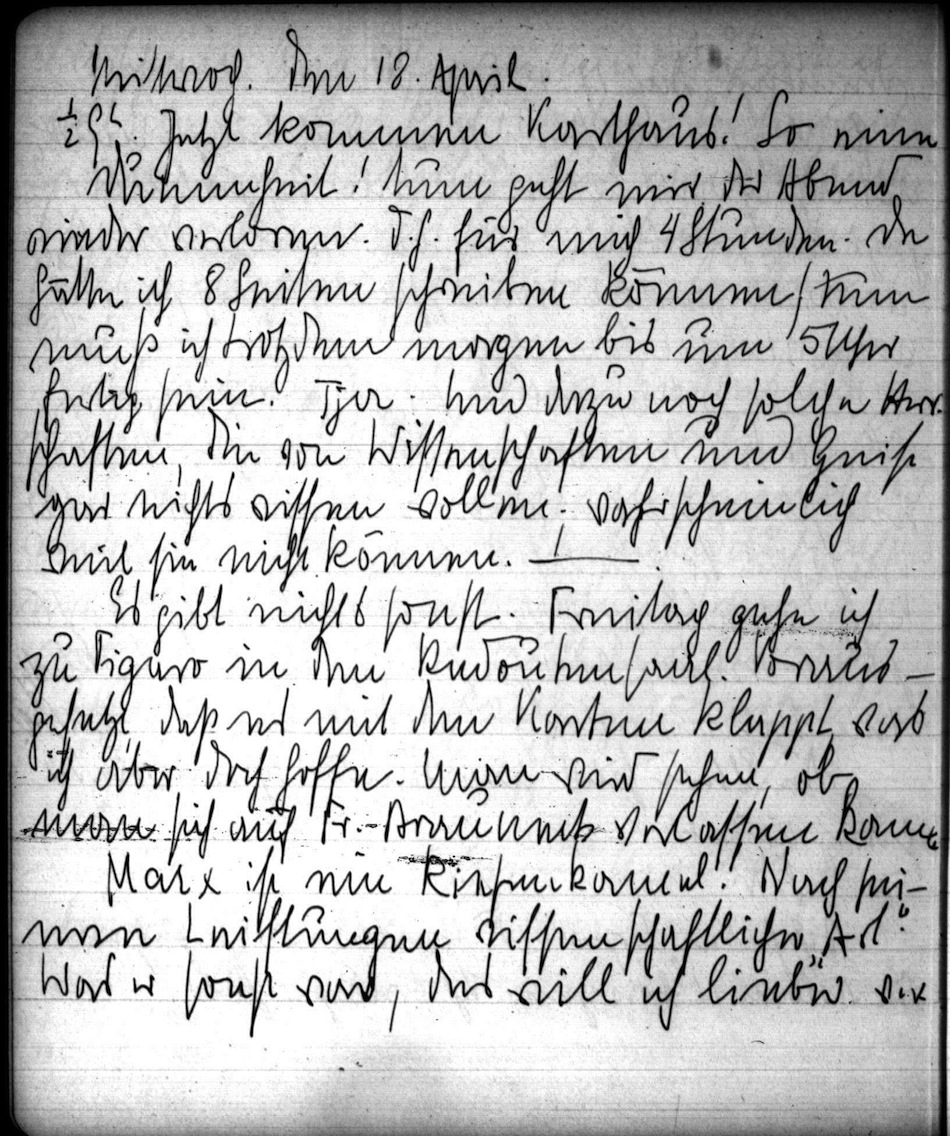 Mittwoch. Den 18. April.
½ 9h. Jetzt kommen Karthaus! So eine
Dummheit! Nun geht mir der Abend
wieder verloren. D.h. für mich 4 Stunden. Da
hätte ich 8 Seiten schreiben können! Nun
muß ich trotzdem morgen bis um 5 Uhr
fertig sein. Tja. Und dazu noch solche Herr-
schaften, die von Wissenschaften und Geist
gar nichts wissen wollen. wahrscheinlich
weil sie nicht können. —
Es gibt nichts sonst. Freitag gehe ich
zu Figaro in den Redoutensaal. Voraus-
gesetzt, daß es mit den Karten klappt, was
ich aber doch hoffe. Man wird sehen, ob
man sich auf Fr. verlassen kann.
Marx ist ein Riesenkamel! Nach sei-
nen Leistungen wissenschaftlicher Art."
Was er sonst war, das will ich lieber